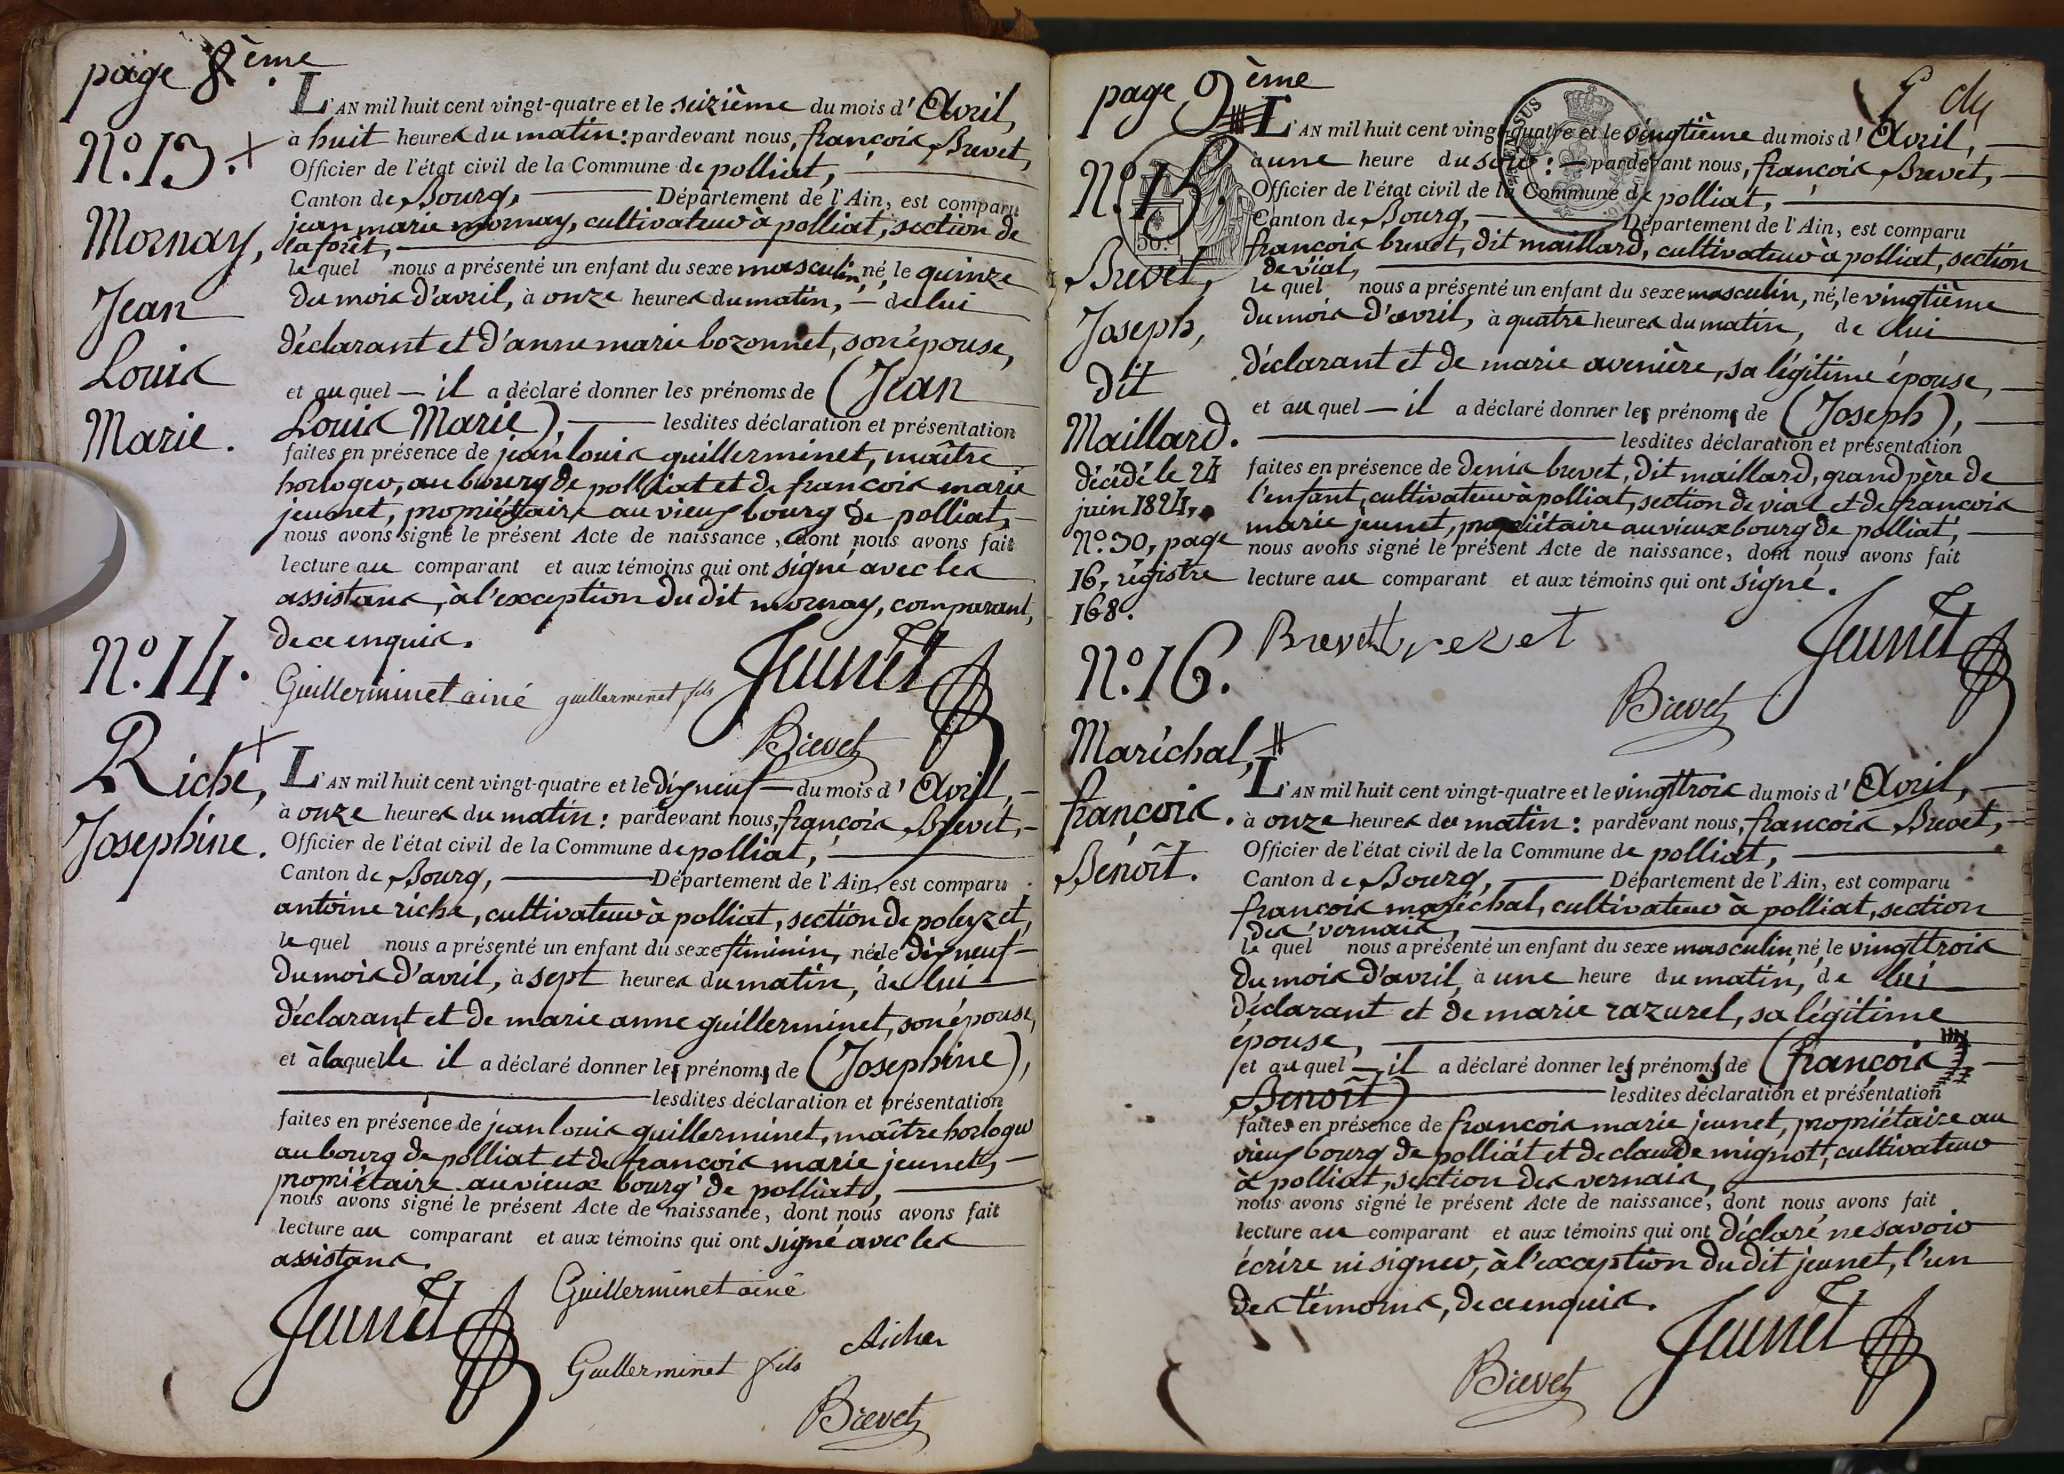 page 8ème
N.º 13.
Mornay,
Jean
Louis
Marie.
L'AN mil huit cent vingt-quatre et le seizième du mois d'Avril,
à huit heures du matin: pardevant nous, françois Brevet,
Officier de l'état civil de la Commune de polliat,
Canton de Bourg, Département de l'Ain, est comparu
jean marie mornay, cultivateur à polliat, section de
laforêt,
le quel nous a présenté un enfant du sexe masculin, né, le quinze
du mois d'avril, à onze heures du matin, de lui
déclarant et d'anne marie bozonnet, son épouse,
et au quel il a déclaré donner les prénoms de (Jean
Louis Marie), lesdites déclaration et présentation
faites en présence de jean louis guillerminet, maître
horloger, au bourg de polliat et de françois marie
jeunet, propriétaire au vieux bourg de polliat,
nous avons signé le présent Acte de naissance, dont nous avons fait
lecture au comparant et aux témoins qui ont signé avec les
assistans, à l'exception du dit mornay, comparant,
de ce enquis.
Guillerminet ainé guillerminet fils Jeunet
Brevet
N.º 14.
Riche,
Josephine.
L'AN mil huit cent vingt-quatre et le dix neuf du mois d'Avril,
à onze heures du matin: pardevant nous, françois Brevet,
Officier de l'état civil de la Commune de polliat,
Canton de Bourg, Département de l'Ain, est comparu
antoine riche, cultivateur à polliat, section de poleyzet,
le quel nous a présenté un enfant du sexe féminin, née le dix neuf
du mois d'avril, à sept heures du matin, de lui
déclarant et de marie anne guillerminet, son épouse,
et à laquelle il a déclaré donner les prénoms de (Josephine),
lesdites déclaration et présentation
faites en présence de jean louis guillerminet, maître horloger
au bourg de polliat et de françois marie jeunet,
propriétaire au vieux bourg de polliat,
nous avons signé le présent Acte de naissance, dont nous avons fait
lecture au comparant et aux témoins qui ont signé avec les
assistans.
Jeunet Guillerminet ainé
Guillerminet fils Riche
Brevet
page 9ème
N.º 15.
Brevet,
Joseph,
dit
Maillard.
décédé le 24
juin 1824,
N.º 30, page
16, régistre
168.
L'AN mil huit cent vingt-quatre et le vingtième du mois d'Avril,
à une heure du soir: pardevant nous, françois Brevet,
Officier de l'état civil de la Commune de polliat,
Canton de Bourg, Département de l'Ain, est comparu
françois brevet, dit maillard, cultivateur à polliat, section
de vial,
le quel nous a présenté un enfant du sexe masculin, né, le vingtième
du mois d'avril, à quatre heures du matin, de lui
déclarant et de marie avenière, sa légitime épouse,
et au quel il a déclaré donner les prénoms de (Joseph),
lesdites déclaration et présentation
faites en présence de denis brevet, dit maillard, grand père de
l'enfant, cultivateur à polliat, section de vial et de françois
marie jeunet, propriétaire au vieux bourg de polliat,
nous avons signé le présent Acte de naissance, dont nous avons fait
lecture au comparant et aux témoins qui ont signé.
Brevet brevet Jeunet
Brevet
N.º 16.
Maréchal,
françois.
Benoît.
L'AN mil huit cent vingt-quatre et le vingt trois du mois d'Avril,
à onze heures du matin: pardevant nous, françois Brevet,
Officier de l'état civil de la Commune de polliat,
Canton de Bourg, Département de l'Ain, est comparu
françois maréchal, cultivateur à polliat, section
des vernais,
le quel nous a présenté un enfant du sexe masculin, né, le vingt trois
du mois d'avril, à une heure du matin, de lui
déclarant et de marie razurel, sa légitime
épouse,
et au quel il a déclaré donner les prénoms de (françois
Benoît) lesdites déclaration et présentation
faites en présence de françois marie jeunet, propriétaire au
vieux bourg de polliat et de claude mignot, cultivateur
à polliat, section des vernais,
nous avons signé le présent Acte de naissance, dont nous avons fait
lecture au comparant et aux témoins qui ont déclaré ne savoir
écrire ni signer, à l'exception du dit jeunet, l'un
des témoins, de ce enquis.
Jeunet
Brevet